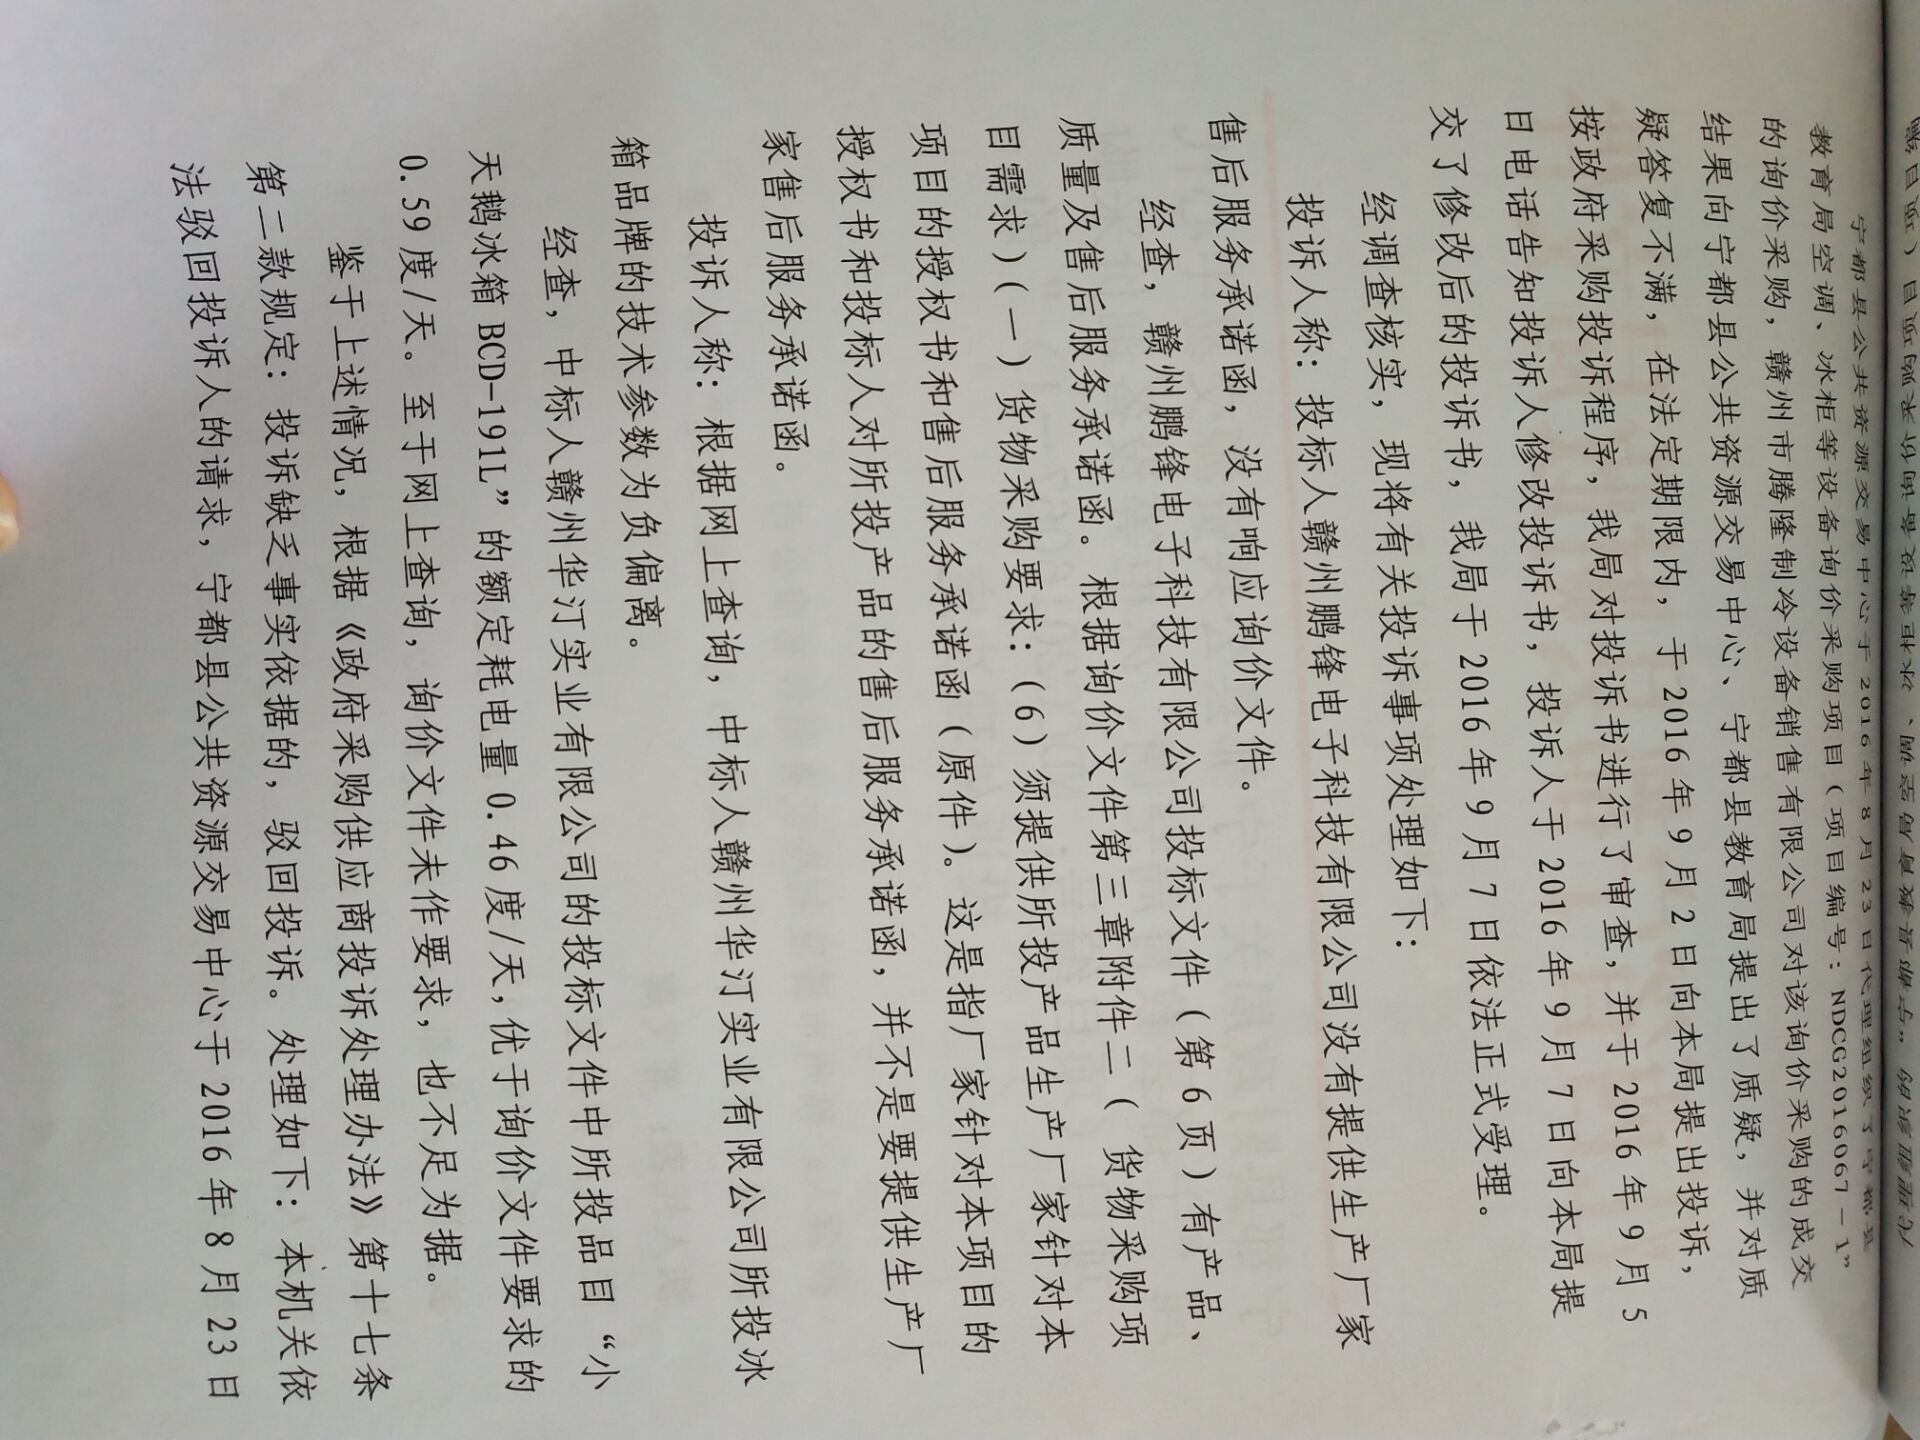 宁都县公共资源交易中心于2016年8月23日代理组织了宁都县
教育局空调、冰柜等设备询价采购项目（项目编号：NDCG2016067-1”
的询价采购，赣州市腾隆制冷设备销售有限公司对该询价采购的成交
结果向宁都县公共资源交易中心、宁都县教育局提出了质疑，并对质
疑答复不满，在法定期限内，于2016年9月2日向本局提出投诉，
按政府采购投诉程序，我局对投诉书进行了审查，并于2016年9月5
日电话告知投诉人修改投诉书，投诉人于2016年9月7日向本局提
交了修改后的投诉书，我局于2016年9月7日依法正式受理。
经调查核实，现将有关投诉事项处理如下：
投诉人称：投标人赣州鹏锋电子科技有限公司没有提供生产厂家
售后服务承诺函，没有响应询价文件。
经查，赣州鹏锋电子科技有限公司投标文件（第6页）有产品、
质量及售后服务承诺函。根据询价文件第三章附件二（ 货物采购项
目需求）(一）货物采购要求：(6）须提供所投产品生产厂家针对本
项目的授权书和售后服务承诺函（原件）。这是指厂家针对本项目的
授权书和投标人对所投产品的售后服务承诺函，并不是要提供生产厂
家售后服务承诺函。
投诉人称：根据网上查询，中标人赣州华汀实业有限公司所投冰
箱品牌的技术参数为负偏离。
经查，中标人赣州华汀实业有限公司的投标文件中所投品目“小
天鹅冰箱BCD-191L”的额定耗电量0.46度/天，优于询价文件要求的
0.59度/天。至于网上查询，询价文件未作要求，也不足为据。
鉴于上述情况，根据《政府采购供应商投诉处理办法》第十七条
第二款规定：投诉缺乏事实依据的，驳回投诉。处理如下：本机关依
法驳回投诉人的请求，宁都县公共资源交易中心于2016年8月23日